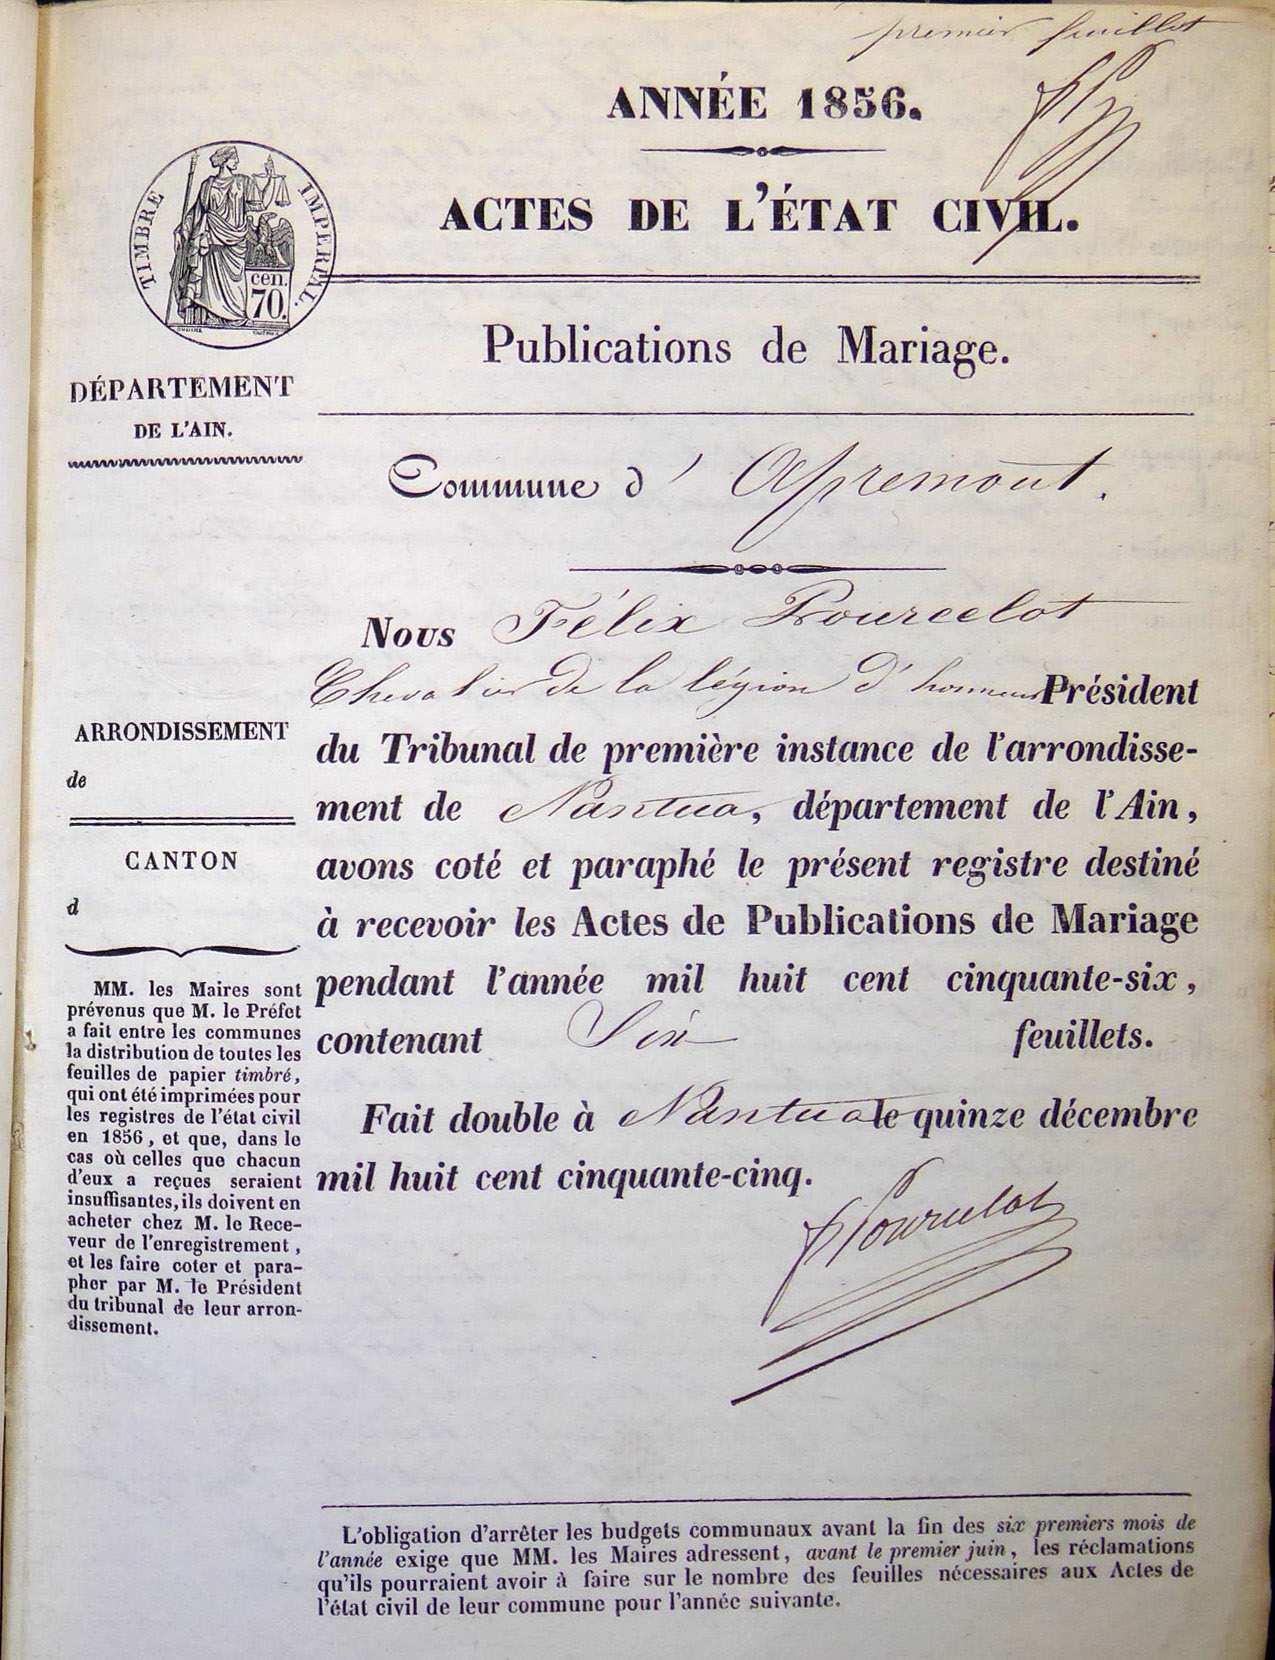 premier feuillet
ANNÉE 1856.
ACTES DE L'ÉTAT CIVIL.
TIMBRE IMPERIAL.
cen.
70.
Publications de Mariage.
DÉPARTEMENT
DE L'AIN.
Commune d' Apremont.
Nous Félix Pourcelot
Chevalier de la légion d'honneur Président
du Tribunal de première instance de l'arrondisse-
ment de Nantua, département de l'Ain,
avons coté et paraphé le présent registre destiné
à recevoir les Actes de Publications de Mariage
pendant l'année mil huit cent cinquante-six,
contenant Six feuillets.
Fait double à Nantua le quinze décembre
mil huit cent cinquante-cinq.
F Pourcelot
ARRONDISSEMENT
de
CANTON
d
MM. les Maires sont
prévenus que M. le Préfet
a fait entre les communes
la distribution de toutes les
feuilles de papier timbré,
qui ont été imprimées pour
les registres de l'état civil
en 1856, et que, dans le
cas où celles que chacun
d'eux a reçues seraient
insuffisantes, ils doivent en
acheter chez M. le Rece-
veur de l'enregistrement,
et les faire coter et para-
pher par M. le Président
du tribunal de leur arron-
dissement.
L'obligation d'arrêter les budgets communaux avant la fin des six premiers mois de
l'année exige que MM. les Maires adressent, avant le premier juin, les réclamations
qu'ils pourraient avoir à faire sur le nombre des feuilles nécessaires aux Actes de
l'état civil de leur commune pour l'année suivante.